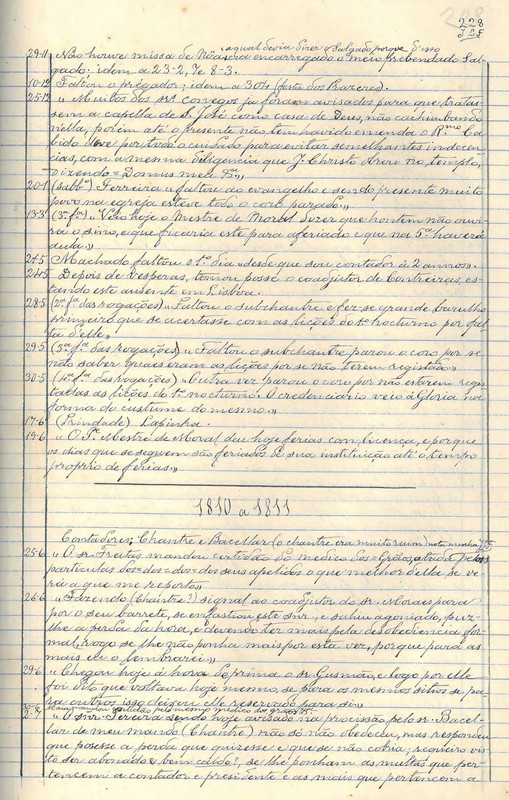 228
228
J.L.F.
qual devia dizer o Salgado porque d'isso
29-11 Não houve missa de Nôa era encarregado o meio prebendado Sal-
gado; idem a 23-2, Te 8-3.
10-12 Faltou o prégador; idem a 30-4 (festa dos Prazeres).
25-12 "Muitos dos srs conegos ja foram avisados para que tratas-
sem a capella de S. José como casa de Deus, não cachimbando
n'ella, porém até o presente não tem havido emenda o Rmo Ca-
bido deve por todo o cuidado para evitar semelhantes indecen-
cias, com a mesma diligencia que J. Christo no templo,
dizendo = Domus mea &a»
20-1 (sabbo) Ferreira "faltou ao evangelho e sendo presente muito
povo na egreja esteve todo o coro parado."
13-3 (3ª fª) "Veio hoje o Mestre de Moral dizer que hontem não ouvi-
ra o sino, e que ficaria este para aferiado e que na 5ª haverá
aula."
24-5 Machado faltou o 1º dia "desde que sou contador à 2 annos".
24-5 Depois de vesperas, tomou posse o coadjutor de Contreiras, es-
tando este ausente em Lisboa.
28-5 (2ª fª das rogações) "Faltou o subchantre e fez-se grande barulho
primeiro que se acertasse com as lições do 1º nocturno por fal-
ta d'elle".
29-5 (3ª fª das rogações) "Faltou o subchantre parou o coro por se
não saber quaes eram as lições por se não terem registado"
30-5 (4ª fª das rogações) "Outra vez parou o coro por não estarem regis-
tadas as lições do 1º nocturno. O credenciario veio á Gloria na
forma do custume do mesmo."
17-6 (Trindade) Lapinha.
19-6 "O Pe Mestre de Moral deu hoje ferias com licença, e porque
os dias que se seguem são feriados à sua instituição até o tempo
proprio de ferias."
1810 a 1811
Contadores; Chantre e Bacellar (o chantre era muito ruim) nota minha J.L.F.
25-6 "O sr Freitas mandou certidão do medico dos = Grãos, atraz pelos
particulas dos = dos = dos = dos seus apelidos o que melhor della se ve-
rá a que me reporto"
26-6 "Fazendo (Chantre?) signal ao coadjutor do sr. Moraes para
por o seu barrete, se enfastiou este snr, e sahiu agoniado, puz-
lhe a perda da hora, e devendo ter mais pela desobediencia for-
mal, rogo se lhe não ponha mais por esta vez, porque para as
mais eu o lembrarei."
29-6 "Chegou hoje á hora de prima o sr. Gusmão, e logo por elle
foi dito que voltava hoje mesmo, se para os mesmos sitios se pa-
ra outros isso deixou elle reservado para si."
2-7 "O snr. Pereira sendo hoje avisado na procissão pelo sr. Bacel-
lar de meu mando (Chantre) não só não obedeceu, mas respondeu
que posesse a perda que quizesse e que se não cobria; requeiro vis-
to ser abonado e bem caldo?, se lhe ponham as multas que per-
tencem a contador e presidente e as mais que pertencem a